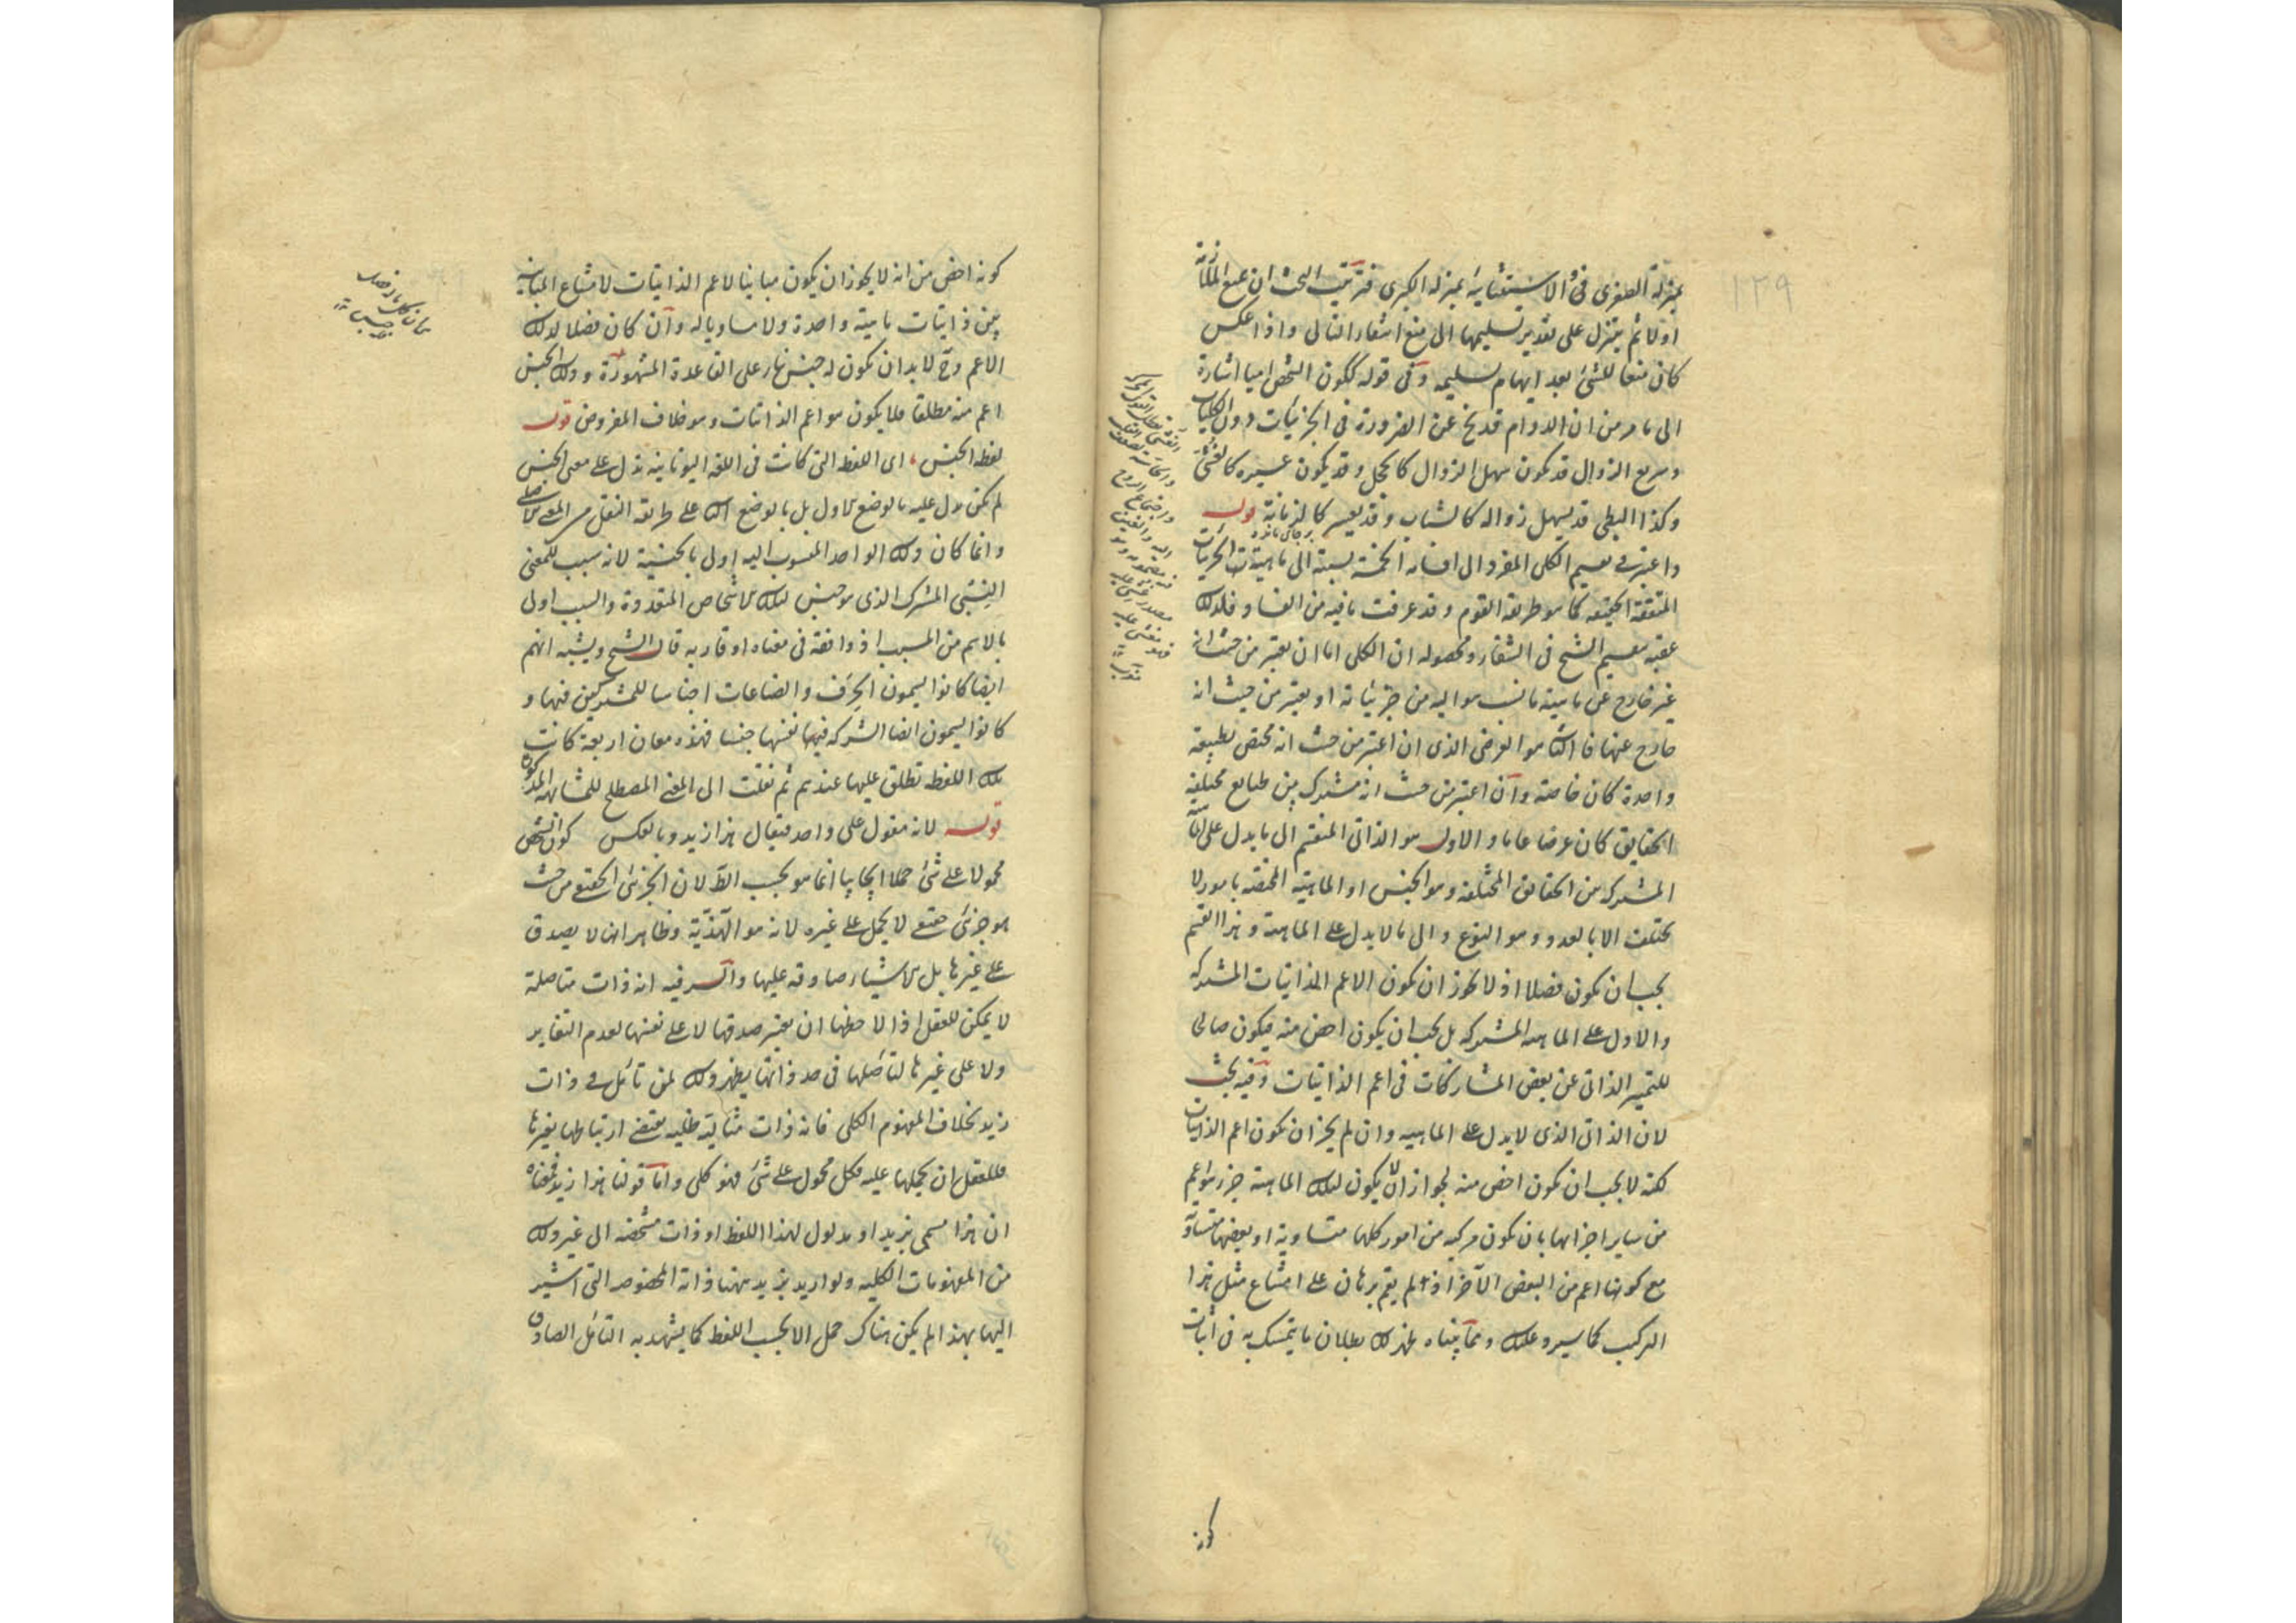 ١٣٩
بمنزلة الصغرى فى الاستثنائية بمنزلة الكبرى فترتيب البحث ان يمنع الملازمة
اولا ثم يتنزل على تقدير تسليمها الى منع انتفاء التالى واذا عكس
كان منعا للشئ بعد ايهام تسليمه وفى قوله ككون الشخص اميا اشارة
الى ما مر من ان الدوام قد ينفك عن الضرورة فى الجزئيات دون الكليات
وسريع الزوال قد يكون سهل الزوال كالخجل وقد يكون عسيره كالغشى
وكذا البطى قد يسهل زواله كالشباب وقد يعسر كالزمانة قوله
واعتبر فى تقسيم الكلى المفرد الى اقسامه الخمسة نسبته الى ماهيات الجزئيات
المتفقة الحقيقة كما هو طريقة القوم وقد عرفت ما فيه من الفساد فلذلك
عقبه تقسيم الشيخ فى الشفاء ومحصوله ان الكلى اما ان يعتبر من حيث انه
غير خارج عن ماهية ما نسب هو اليه من جزئياته او يعتبر من حيث انه
خارج عنها فالثانى هو العرضى الذى ان اعتبر من حيث انه مختص بطبيعة
واحدة كان خاصة وان اعتبر من حيث انه مشترك بين طبايع مختلفة
الحقايق كان عرضا عاما والاول هو الذاتى المنقسم الى ما يدل على الماهية
المشتركة من الحقايق المختلفة وهو الجنس او الماهية المختصة بامور لا
تختلف الا بالعدد وهو النوع والى ما لا يدل على الماهية وهذا القسم
يجب ان يكون فصلا اذ لا يجوز ان يكون الاعم الذاتيات المشتركة
والا دل على الماهية المشتركة بل يجب ان يكون اخص منه فيكون صالحا
للتمييز الذاتى عن بعض المشاركات فى اعم الذاتيات وفيه بحث
لان الذاتى الذى لا يدل على الماهية وان لم يجز ان يكون اعم الذاتيات
لكنه لا يجب ان يكون اخص منه لجواز ان لا يكون لتلك الماهية جزء هو اعم
من ساير اجزائها بان يكون مركبه من امور كلها متساوية او بعضها متساو
مع كونها اعم من البعض الآخر اذ لم يقم برهان على امتناع مثل هذا
التركيب كما سيرد عليك ومما بيناه ظهر لك بطلان ما يتمسك به فى اثبات
كونه
كونه اخص من انه لا يجوز ان يكون مباينا لاعم الذاتيات لامتناع المباينة
بين ذاتيات ماهية واحدة ولا مساويا له وان كان فصلا لذلك
الاعم وح لا بد ان يكون له جنس بناء على القاعدة المشهورة وذلك الجنس
اعم منه مطلقا فلا يكون هو اعم الذاتيات وهو خلاف المفروض قوله
لفظة الجنس اى اللفظ التى كانت فى اللغة اليونانية تدل على معنى الجنس
لم يكن يدل عليه بالوضع الاول بل بالوضع الثانى على طريقة النقل من المعنى الاصلى
وانما كان ذلك الواحد المنسوب اليه اولى بالجنسية لانه سبب للمعنى
النسبى المشترك الذى هو جنس لتلك الاشخاص المتعددة والسبب اولى
بالاسم من المسبب اذ وافقه فى معناه او قاربه قال الشيخ ويشبه انهم
ايضا كانوا يسمون الحرف والصناعات اجناسا للمشتركين فيها و
كانوا يسمون ايضا الشركة فيها نفسها جنسا فهذه معان اربعة كانت
تلك اللفظة تطلق عليها عندهم ثم نقلت الى المعنى المصطلح للمشابهة المذكورة
قوله لانه مقول على واحد فيقال هذا زيد وبالعكس كون الشخص
محمولا على شئ حملا ايجابيا انما هو بحسب الظ لان الجزئى الحقيقى من حيث
هو جزئى حقيقى لا يحمل على غيره لانه هو الهذية وظاهر انه لا يصدق
على غيرها بل الاشياء صادقه عليها والسر فيه انه ذات متاصلة
لا يمكن للعقل اذا لاحظها ان يعتبر صدقها لا على نفسها لعدم التغاير
ولا على غيرها لتأصلها فى حد ذاتها يظهر ذلك لمن تأمل فى ذات
زيد بخلاف المفهوم الكلى فانه ذات مثالية ظلية يقتضى ارتباطها بغيرها
فللعقل ان يحملها عليه فكل محمول على شئ فهو كلى واما قولنا هذا زيد فمعناه
ان هذا مسمى بزيد او مدلول لهذا اللفظ او ذات مشخصة الى غير ذلك
من المفهومات الكلية ولو اريد بزيد ههنا ذاته المخصوصة التى اشير
اليها بهذا لم يكن هناك حمل الا بحسب اللفظ كما يشهد به التأمل الصادق